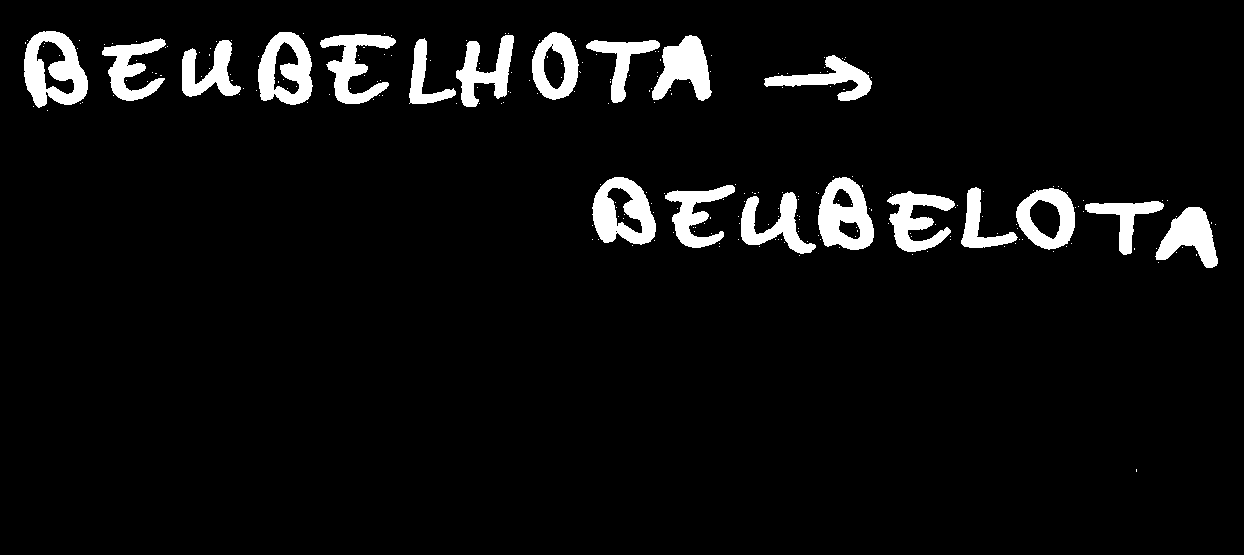 BEUBELHOTA →
BEUBELOTA